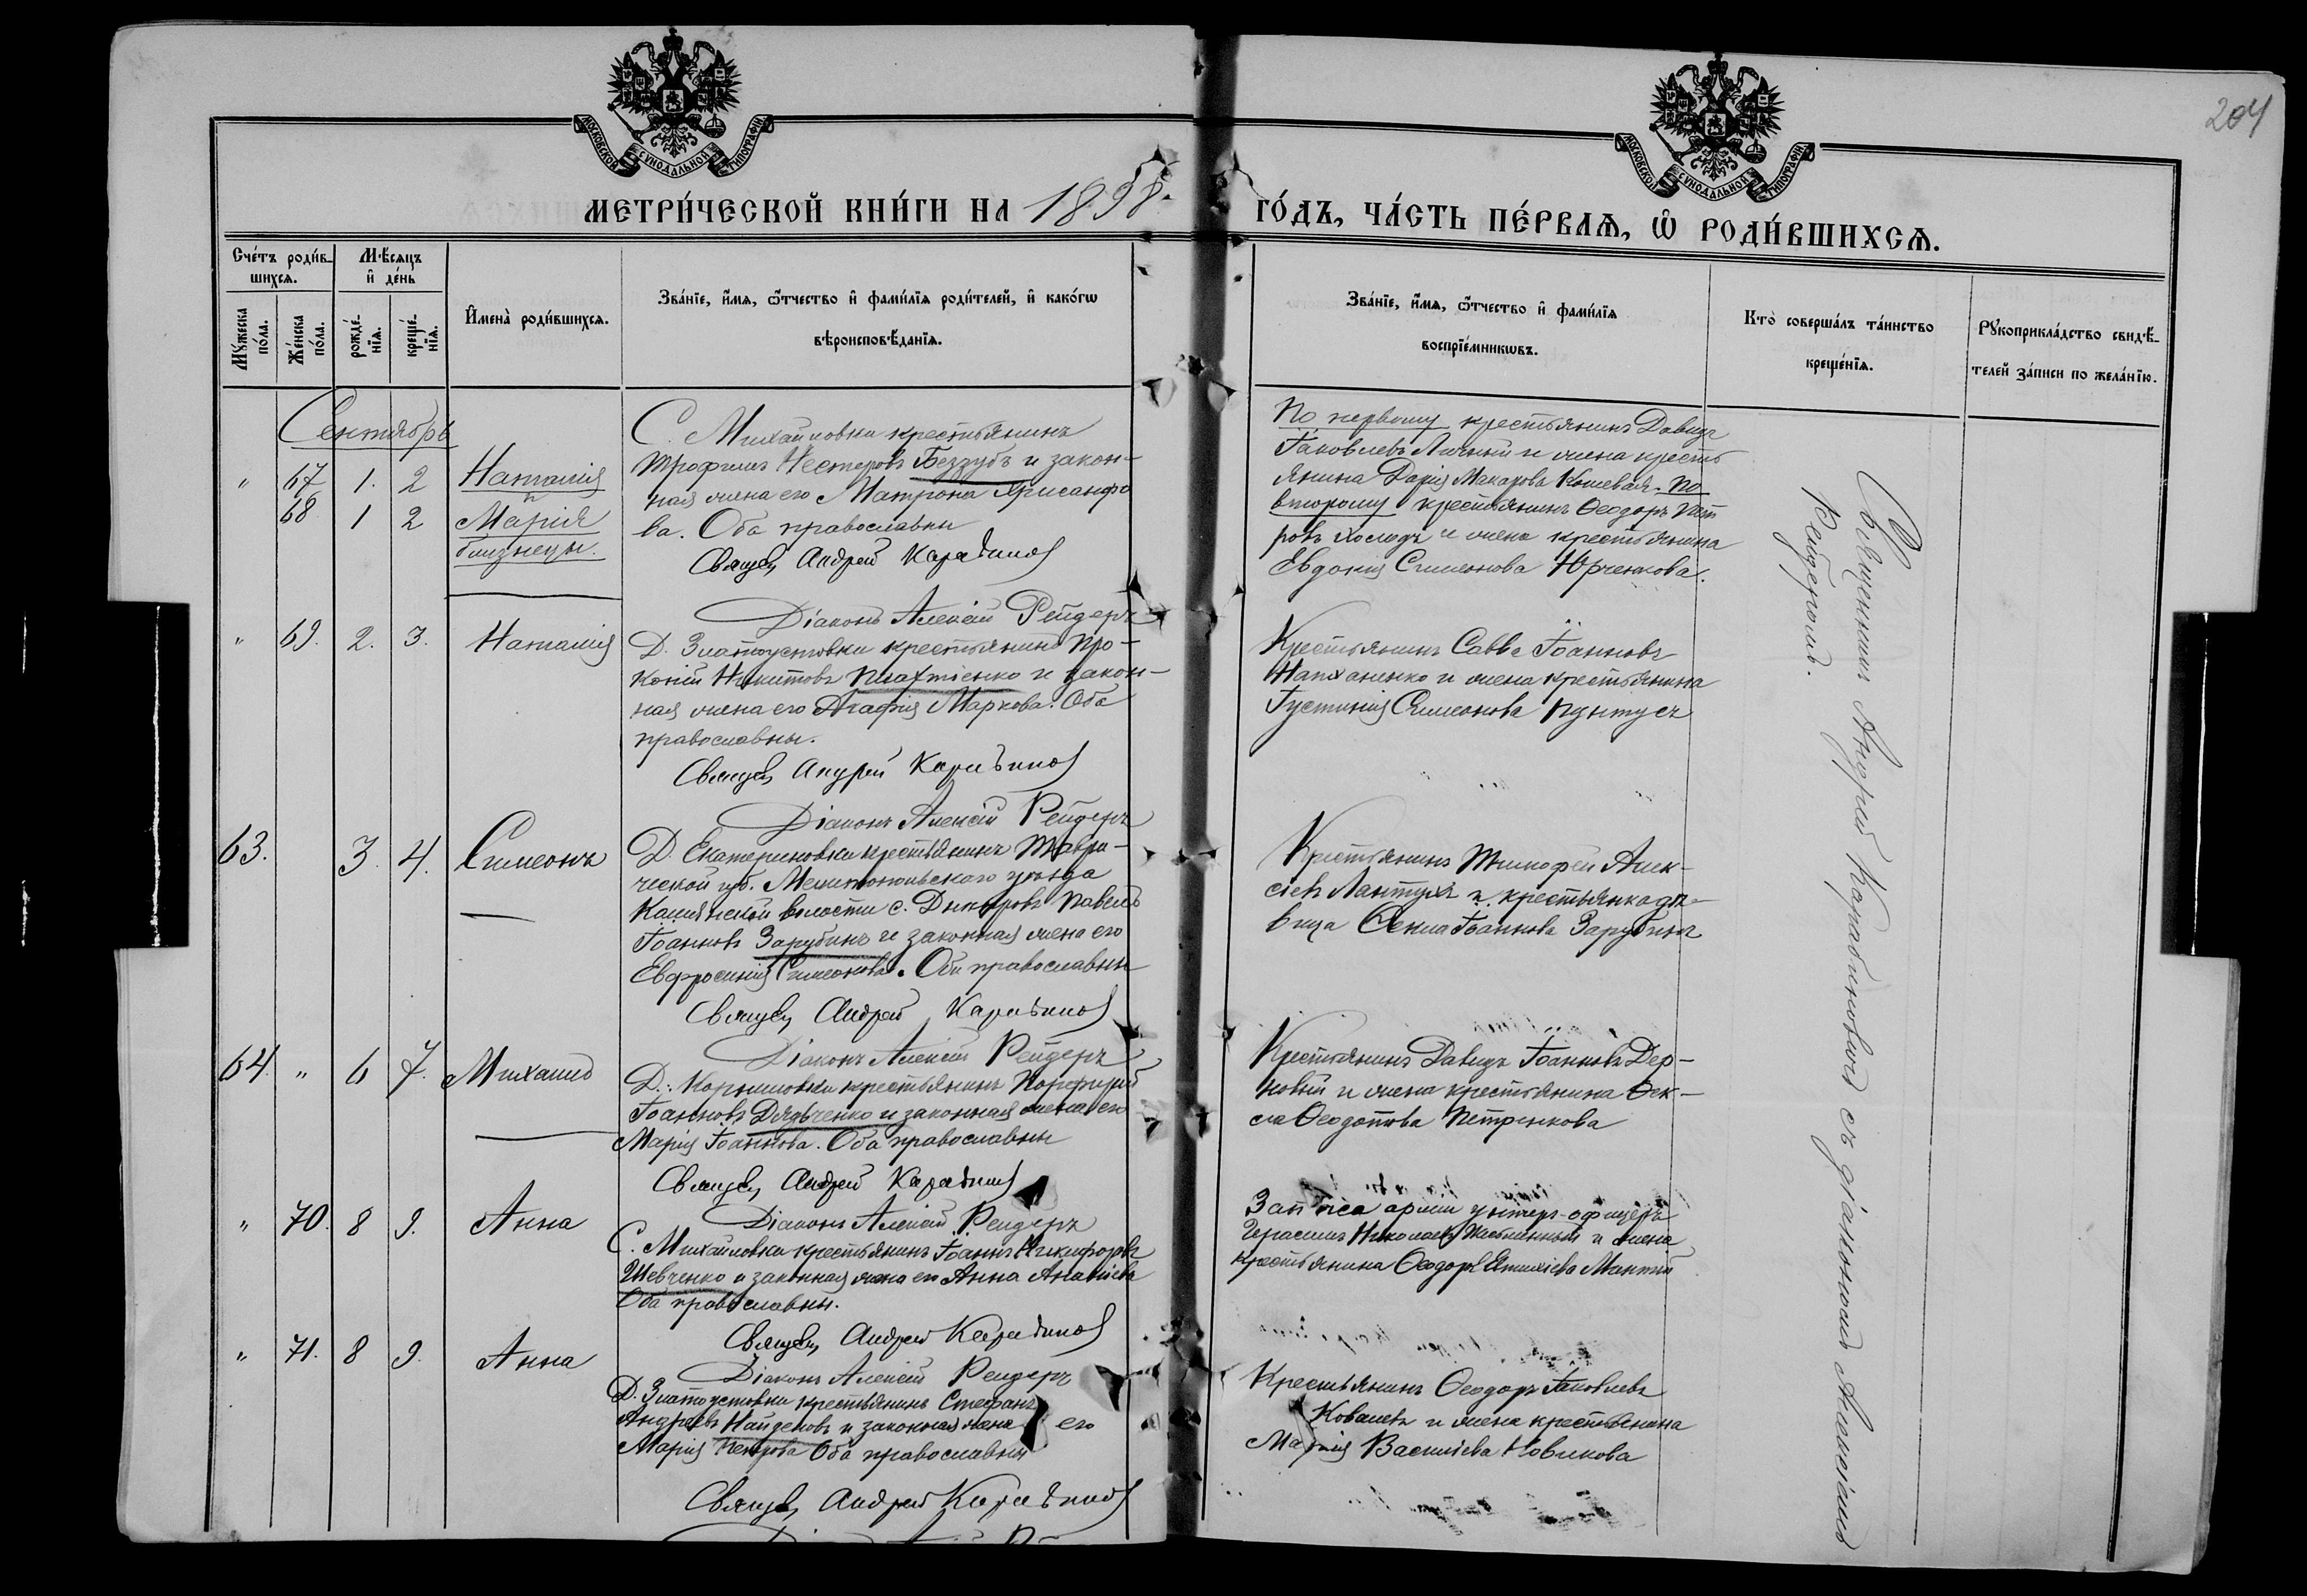 204
МОСКОВСКОЙ СѴНОДАЛЬНОЙ ТИПОГРАФІИ
МОСКОВСКОЙ СѴНОДАЛЬНОЙ ТИПОГРАФІИ
МЕТРИ́ЧЕСКОЙ КНИ́ГИ НА 1898.
ГО́ДЪ, ЧА́СТЬ ПЕ́РВАѦ, Ѽ РОДИ́ВШИХСѦ.
Сче́тъ роди́в-
шихсѧ.
Мꙋжеска по́ла.
Же́нска по́ла.
Мѣ́сѧцъ
и҆ де́нь
рожде́-
нїѧ.
креще́-
нїѧ.
И҆мена̀ роди́вшихсѧ.
Зва́нїе, и҆́мѧ, ѻ҆́тчество и҆ фами́лїѧ роди́телей, и҆ како́гѡ
вѣроисповѣ́данїѧ.
Зва́нїе, и҆́мѧ, ѻ҆́тчество и҆ фами́лїѧ
воспрїе́мникѡвъ.
Кто̀ соверша́лъ та́инство
креще́нїѧ.
Рꙋкоприкла́дство свидѣ́-
телей за́писи по жела́нїю.
Сентябрь
" 67 1. 2 Наталія
и
68 1 2 Марія
близнецы.
С. Михайловки крестьянинъ
Трофимъ Нестеровъ Беззубъ и закон-
ная жена его Матрона Хрисанфо
ва. Оба православны
Священ Андрей Карабинов
Діаконъ Алексій Рейдеръ
По первому крестьянинъ Давидъ
Іаковлевъ и жена кресть
янина Дарія Макарова Кошевая. По
второму крестьянинъ Ѳеодоръ Пет
ровъ Холодъ и жена крестьянина
Евдокія Симеонова Юрченкова.
" 69. 2. 3. Наталія
Д. Златоустовки крестьянинъ Про-
копій Никитовъ и закон-
ная жена его Агафія Маркова. Оба
православны.
Священ Андрей Карабинов
Діаконъ Алексій Рейдеръ
Крестьянинъ Савва Іоанновъ
и жена крестьянина
Іустинія Симеонова Пунтусъ
63. 3. 4. Симеонъ
Д. Екатериновки крестьянинъ Таври-
ческой губ. Мелитопольскаго уѣзда
волости с. Павелъ
Іоанновъ Зарубинъ и законная жена его
Евфросинія Симеонова. Оба православны
Священ Андрей Карабинов
Діаконъ Алексій Рейдеръ
Крестьянинъ Тимофей Алек-
сіевъ Лантухъ и крестьянка дѣ-
вица Іоаннова Зарубина
64. " 6 7. Михаилъ
Д. крестьянинъ Порфирій
Іоанновъ Дядьченко и законная жена его
Марія Іоаннова. Оба православны
Священ Андрей Карабинов
Діаконъ Алексій Рейдеръ
Крестьянинъ Давидъ Іоанновъ Дер-
новый и жена крестьянина Ѳек-
ла Ѳеодотова Петренкова
" 70. 8 9. Анна
С. Михайловки крестьянинъ Іоаннъ Никифоровъ
Шевченко и законная жена его Анна Ананіева
Оба православны.
Священ Андрей Карабинов
Діаконъ Алексій Рейдеръ
Запаса арміи унтеръ-офицеръ
Герасимъ Николаевъ и жена
крестьянина
" 71. 8 9. Анна
Д. Златоустовки крестьянинъ Стефанъ
Андреевъ Найденовъ и законная жена его
Марія Петрова Оба православны
Священ Андрей Карабинов
Крестьянинъ Ѳеодоръ Іаковлевъ
Ковалевъ и жена крестьянина
Марія Василіева Новикова
Священникъ Андрей Карабиновъ съ діакономъ Алексіемъ
Рейдеромъ.